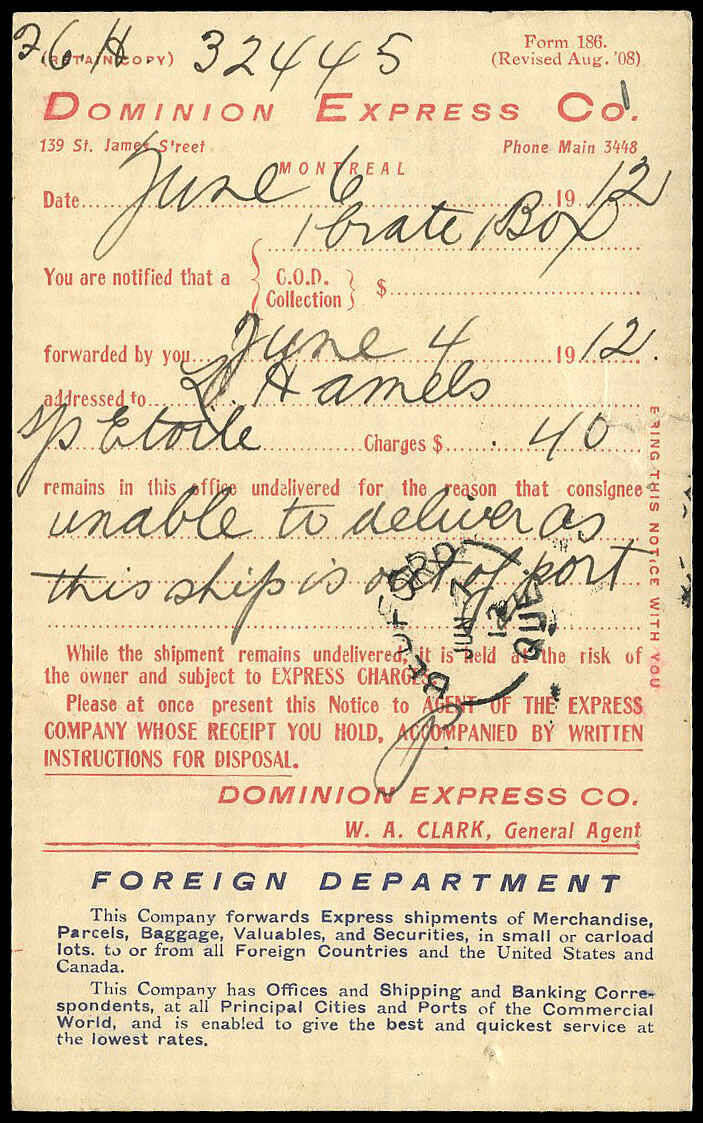 26.H. 32445
(RETAIN COPY)
Form 186.
(Revised Aug. '08)
DOMINION EXPRESS CO.
139 St. James Street
Phone Main 3448
MONTREAL
Date June 6 1912
1 Crate 1 Box
You are notified that a { C.O.D. Collection } $
forwarded by you June 4 1912.
addressed to L. Hamels
s/s Etoile Charges $ .40
remains in this office undelivered for the reason that consignee
unable to deliver as
this ship is out of port
BRING THIS NOTICE WITH YOU
BEDFORD
JUN 7
12
QUE
While the shipment remains undelivered, it is held at the risk of
the owner and subject to EXPRESS CHARGES.
Please at once present this Notice to AGENT OF THE EXPRESS
COMPANY WHOSE RECEIPT YOU HOLD, ACCOMPANIED BY WRITTEN
INSTRUCTIONS FOR DISPOSAL.
DOMINION EXPRESS CO.
W. A. CLARK, General Agent
FOREIGN DEPARTMENT
This Company forwards Express shipments of Merchandise,
Parcels, Baggage, Valuables, and Securities, in small or carload
lots. to or from all Foreign Countries and the United States and
Canada.
This Company has Offices and Shipping and Banking Corre-
spondents, at all Principal Cities and Ports of the Commercial
World, and is enabled to give the best and quickest service at
the lowest rates.